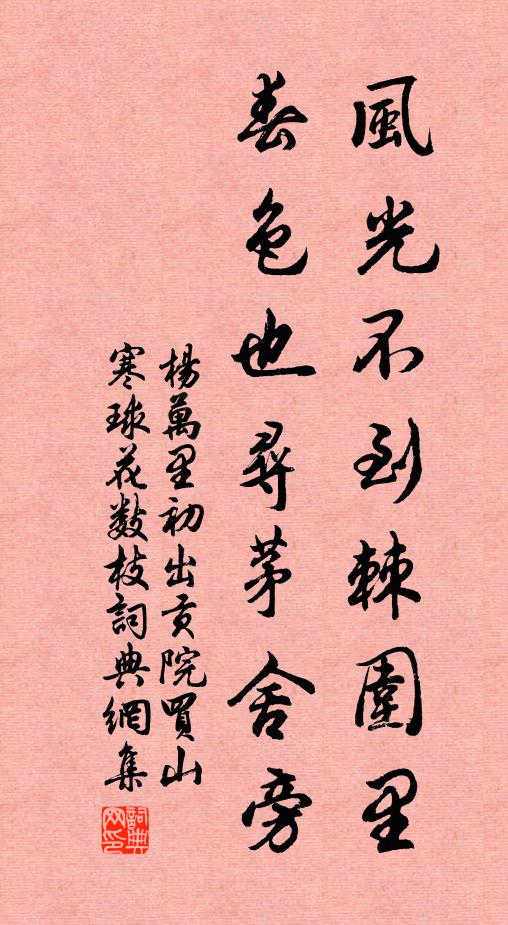 風光不到棘圍里
春色也尋茅舍旁
楊萬里初出貢院買山
寒球花数枝詞典網集
詞典网印